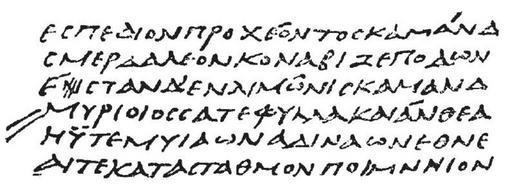 ΕϹΠΕΔΙΟΝΠΡΟΧΕΌΝΤΟϹΚΑΜΆΝΔ
ΕϹΜΕΡΔΑΛΕΟΝΚΟΝΑΒΙΖΕΠΟΔΩΝ
ΈϹΤΑΝΔ'ΕΝΛΙΜῶΝΙϹΚΑΜΑΝΔ
ΜΥΡΙΟΙΟϹϹΑΤΕΦΥΛΛΑΚΑΙΆΝΘΕΑ
ΗΫΤΕΜΥΙΑΩΝΑΔΙΝΑΩΝΕΘΝΕ
ΑΙΤΕΚΑΤΑϹΤΑΘΜΟΝΠΟΙΜΝΗΙΟΝ